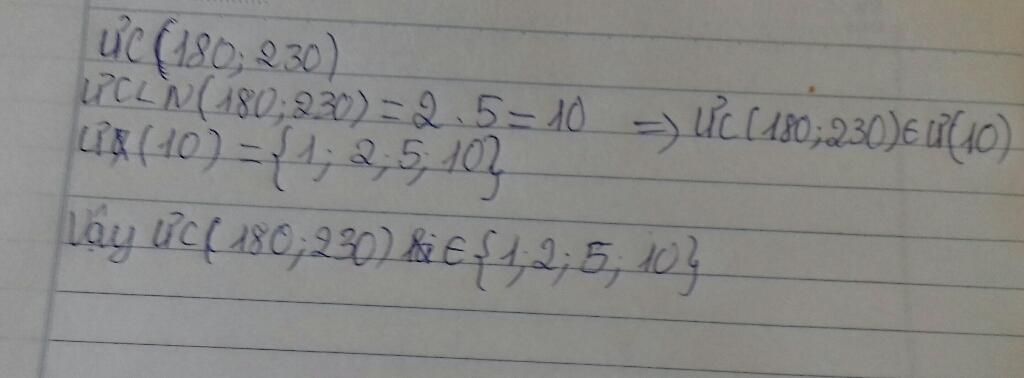 ƯC(180; 230)
ƯCLN(180; 230) = 2 . 5 = 10 => ƯC(180; 230) ∈ Ư(10)
Ư(10) = {1; 2; 5; 10}
Vậy ƯC(180; 230) ∈ {1; 2; 5; 10}